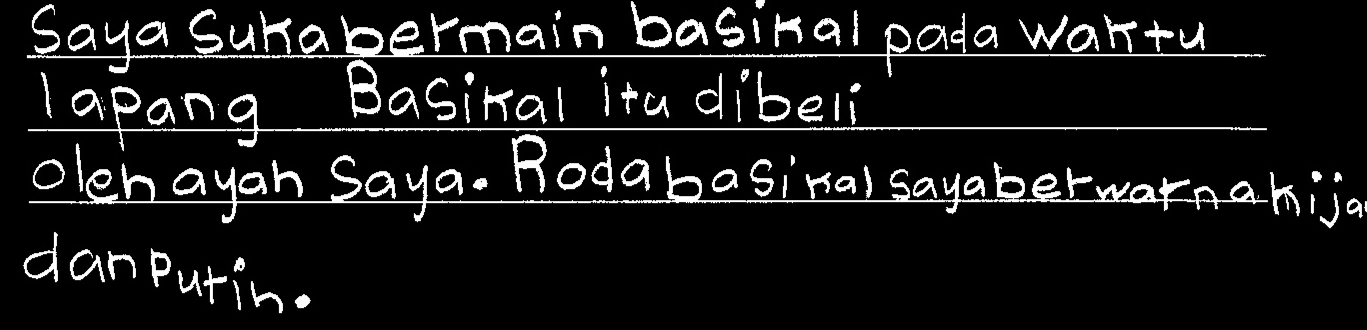 Saya suka bermain basikal pada waktu
lapang Basikal itu dibeli
oleh ayah saya. Roda basikal saya berwarna hija
dan putih.